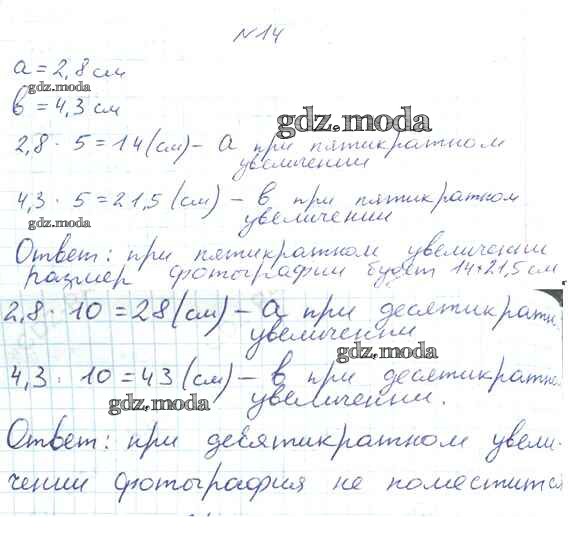 №14
a = 2,8 см
gdz.moda
в = 4,3 см
gdz.moda
2,8 · 5 = 14 (см) – а при пятикратном
увеличении
4,3 · 5 = 21,5 (см) – в при пятикратном
gdz.moda
увеличении
Ответ: при пятикратном увеличении
размер фотографии будет 14×21,5 см
2,8 · 10 = 28 (см) – а при десятикратн
увеличении
gdz.moda
4,3 · 10 = 43 (см) – в при десятикратно
gdz.moda
увеличении.
Ответ: при десятикратном увели-
чении фотография не поместится